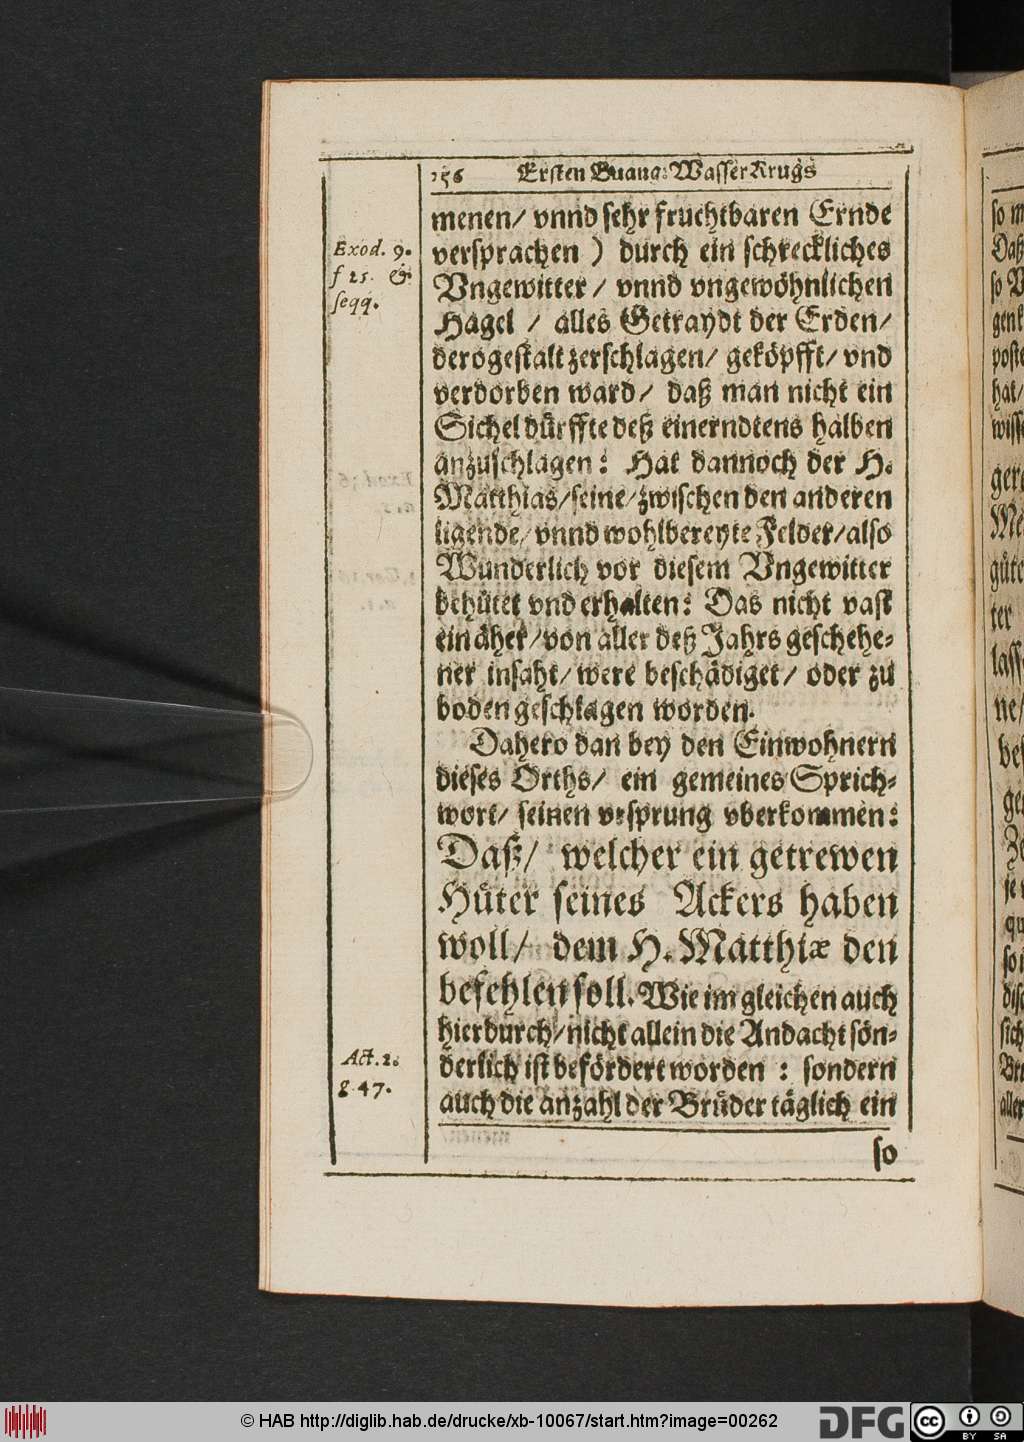 156 Ersten Euang: Wasser Krugs
menen/ vnnd sehr fruchtbaren Ernde
versprachen ) durch ein schreckliches
Vngewitter / vnnd vngewöhnlichen
Hagel / alles Getraydt der Erden/
derogestalt zerschlagen/ geköpfft/ vnd
verdorben ward/ daß man nicht ein
Sichel dürffte deß einerndtens halben
anzuschlagen: Hat dannoch der H.
Matthias/ seine/ zwischen den anderen
ligende/ vnnd wohlbereyte Felder/ also
Wunderlich vor diesem Vngewitter
behütet vnd erhalten: Das nicht vast
ein äher/ von aller deß Jahrs geschehe-
ner insaht/ were beschädiget/ oder zu
boden geschlagen worden.
Dahero dan bey den Einwohnern
dieses Orths/ ein gemeines Sprich-
wort/ seinen vrsprung vberkommen:
Daß/ welcher ein getrewen
Hüter seines Ackers haben
woll/ dem H. Matthiæ den
befehlen soll. Wie im gleichen auch
hierdurch/ nicht allein die Andacht sön-
derlich ist befördert worden : sondern
auch die anzahl der Brüder täglich ein
so
Exod. 9.
f 25. &
seqq.
Act. 2.
g 47.
© HAB http://diglib.hab.de/drucke/xb-10067/start.htm?image=00262
DFG
cc BY SA